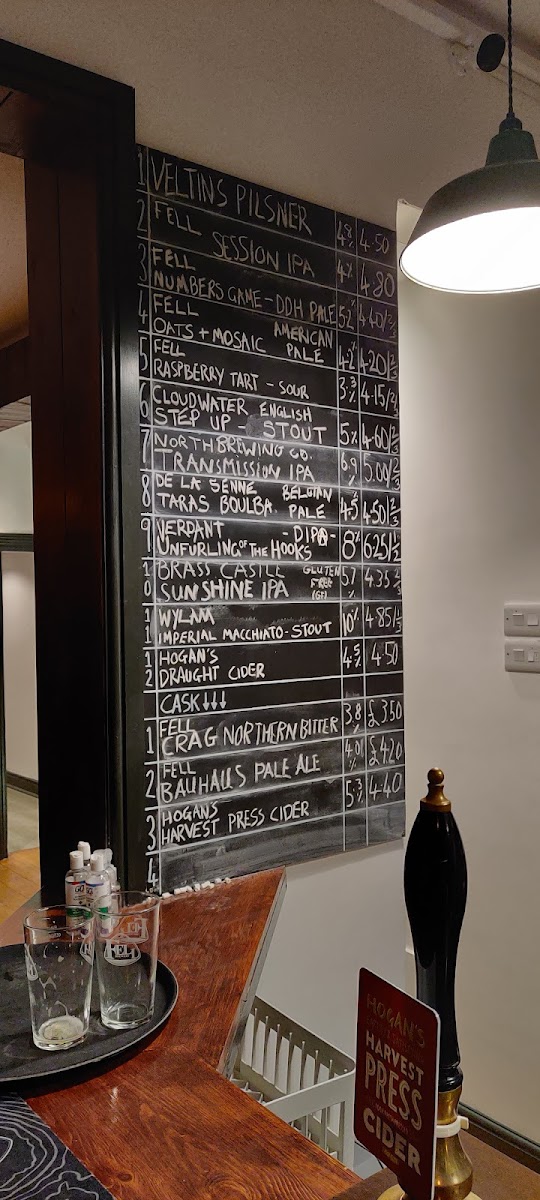 1 VELTINS PILSNER 4.8% 4.50
2 FELL
SESSION IPA 4% 4.80
3 FELL
NUMBERS GAME - DDH PALE 5.2% 4.40/ 2/3
4 FELL AMERICAN
OATS + MOSAIC PALE 4.2% 4.20/ 2/3
5 FELL
RASPBERRY TART - SOUR 3.3% 4.15/ 2/3
6 CLOUDWATER ENGLISH
STEP UP - STOUT 5% 4.60/ 2/3
7 NORTH BREWING CO.
TRANSMISSION IPA 6.9% 5.00/ 2/3
8 DE LA SENNE BELGIAN
TARAS BOULBA. PALE 4.5% 4.50/ 2/3
9 VERDANT - DIPA -
UNFURLING OF THE HOOKS 8% 6.25/ 1/2
10 BRASS CASTLE GLUTEN FREE
SUNSHINE IPA (GF) 5.7% 4.35 2/3
11 WYLAM
IMPERIAL MACCHIATO - STOUT 10% 4.85/ 1/3
12 HOGAN'S
DRAUGHT CIDER 4.5% 4.50
CASK ↓↓↓
1 FELL
CRAG NORTHERN BITTER 3.8% £3.50
2 FELL
BAUHAUS PALE ALE 4.0% £4.20
3 HOGANS
HARVEST PRESS CIDER 5.3% 4.40
4
FELL
HOGAN'S
HARVEST
PRESS
CIDER